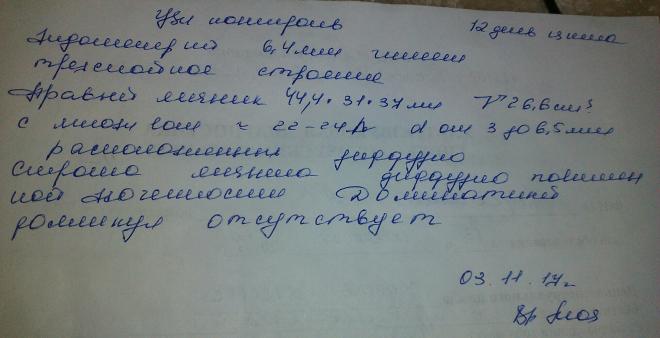 УЗИ контроль 12 день цикла
Эндометрий 6,4 мм имеет
трехслойное строение
Правый яичник 44,4*31*37 мм V 26,6 см³
с ≈ 22-24 d от 3 до 6,5 мм
расположенных диффузно
Строма яичника диффузно повышен
ной эхогенности Доминатный
фолликул отсутствует
03.11.17г
Вр